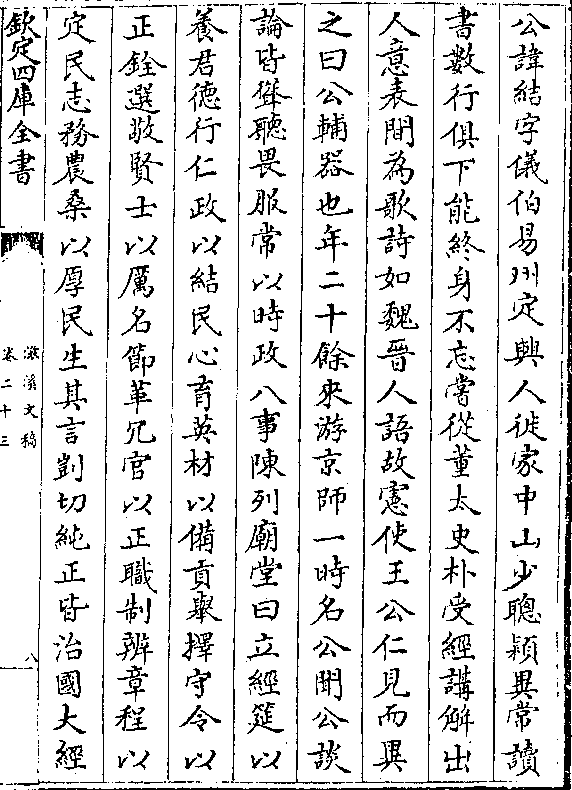 公諱結字儀伯易州定興人徙家中山少聰頴異常讀
書數行俱下能終身不忘嘗從董太史朴受經講解出
人意表間為歌詩如魏晉人語故憲使王公仁見而異
之曰公輔器也年二十餘來游京師一時名公聞公談
論皆聳聽畏服常以時政八事陳列廟堂曰立經筵以
養君德行仁政以結民心育英材以備貢舉擇守令以
正銓選敬賢士以厲名節革冗官以正職制辨章程以
定民志務農桑以厚民生其言剴切純正皆治國大經
欽定四庫全書
滋溪文稿
卷二十三
八